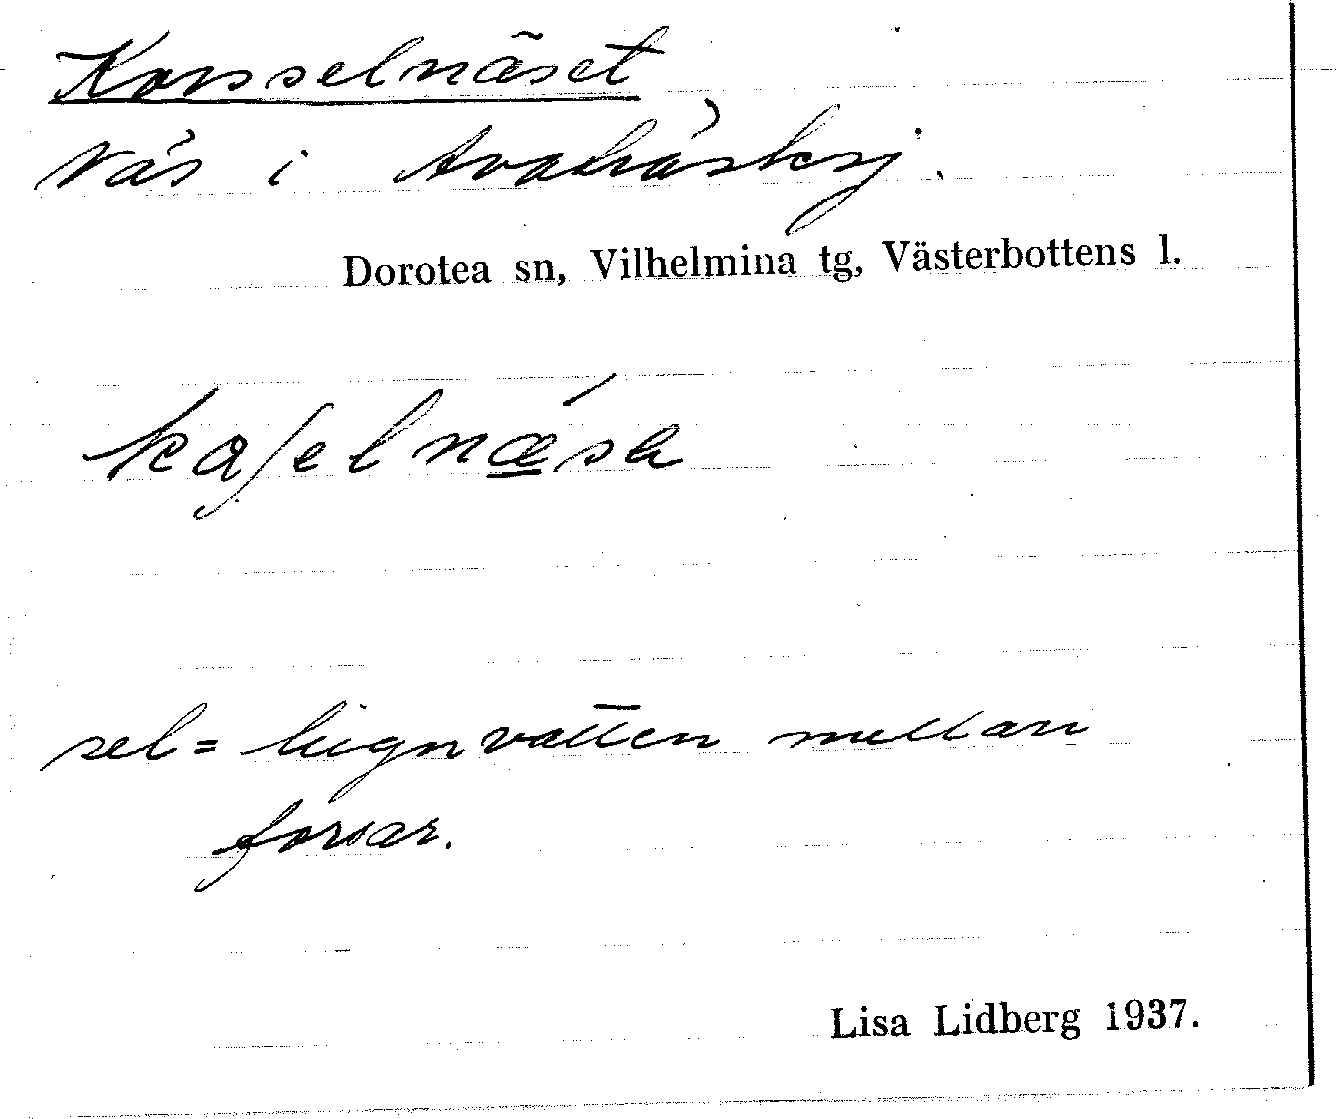 Korsselnäset
Näs i Avaträsksj.
Dorotea sn, Vilhelmina tg, Västerbottens l.
kaʃelnǽsa
sel = lugnvatten mellan
forsar.
Lisa Lidberg 1937.